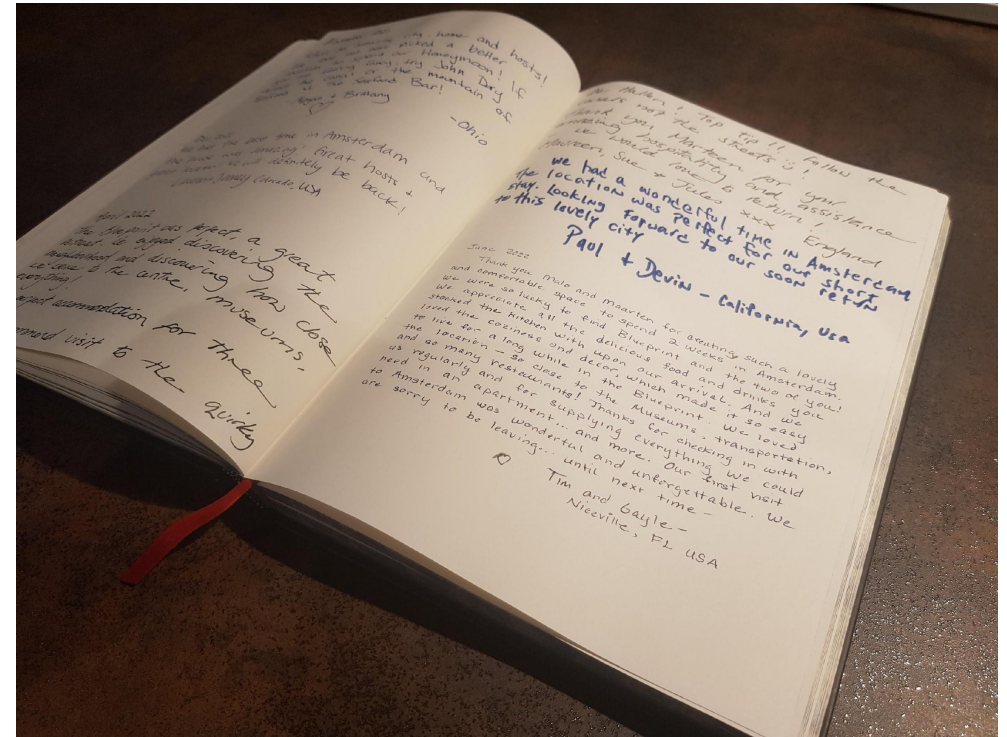 city, home and hosts!
picked a better
Honeymoon! If
try John Dory
the mountain of
Seafood Bar!
& Brittany
- Ohio
time in Amsterdam and
amazing! Great hosts &
definitely be back!
Colorado, USA
April 2022
The Blueprint was perfect, a great
retreat. We enjoyed discovering the
neighbourhood and discovering how close
we were to the centre, museums,
everything!
accommodation for three
visit to the quirky
Top tip!!, Follow the
not the streets!;)
Thank you Marteen for your
hospitality and assistance
we would love to return!
Maureen, Sue & Jules xxx England
we had a wonderful time in Amsterdam
the location was perfect for our short
stay. Looking forward to our soon return
to this lovely city
Paul & Devin - California, Usa
June 2022
Thank you Malo and Maarten for creating such a lovely
and comfortable space to spend 2 weeks in Amsterdam.
We were so lucky to find Blueprint and the two of you!
We appreciate all the delicious food and drinks you
stocked the kitchen with upon our arrival. And we
loved the coziness and decor which made it so easy
to live for a long while in the Blueprint. We loved
the location - so close to the Museums, transportation,
and so many restaurants! Thanks for checking in with
us regularly and for supplying everything we could
need in an apartment... and more. Our first visit
to Amsterdam was wonderful and unforgettable. We
are sorry to be leaving... until next time -
Tim and Gayle -
Niceville, FL USA